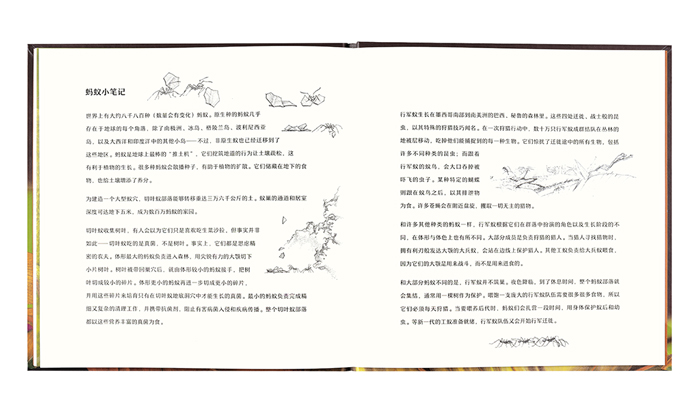 蚂蚁小笔记
世界上有大约八千八百种（数量会有变化）蚂蚁。原生种的蚂蚁几乎
存在于地球的每个角落，除了南极洲、冰岛、格陵兰岛、波利尼西亚
岛，以及大西洋和印度洋中的其他小岛——不过，非原生蚁也已经迁移到了
这些地区。蚂蚁是地球上最棒的“推土机”，它们挖筑地道的行为让土壤疏松，这
有利于植物的生长。很多种蚂蚁会散播种子，有助于植物的扩散。它们储藏在地下的食
物，也给土壤增添了养分。
为建造一个大型蚁穴，切叶蚁部落能够转移重达三万六千公斤的土。蚁巢的通道和居室
深度可达地下五米，成为数百万蚂蚁的家园。
切叶蚁收集树叶，有人会以为它们只是喜欢吃生菜沙拉，但事实并非
如此——切叶蚁吃的是真菌，不是树叶。事实上，它们都是思虑精
密的农夫。体形最大的蚂蚁负责进入森林，用尖锐有力的大颚切下
小片树叶。树叶被带回巢穴后，就由体形较小的蚂蚁接手，把树
叶切成较小的碎片。体形更小的蚂蚁再进一步切成更小的碎片，
并用这些碎片来培育只有在切叶蚁地底洞穴中才能生长的真菌。最小的蚂蚁负责完成精
细又复杂的清理工作，并携带抗菌剂，阻止有害病菌入侵和疾病传播。整个切叶蚁部落
都以这些营养丰富的真菌为食。
行军蚁生长在墨西哥南部到南美洲的巴西、秘鲁的森林里。这些四处迁徙、战士般的昆
虫，以其特殊的狩猎技巧闻名。在一次狩猎行动中，数十万只行军蚁成群结队在丛林的
地被层移动，吃掉他们能捕捉到的每一种生物。它们惊扰了迁徙途中的所有生物，包括
许多不同种类的昆虫；而跟着
行军蚁的蚁鸟，会大口吞掉被
吓飞的虫子。某种特定的蝴蝶
则跟在蚁鸟之后，以其排泄物
为食。许多苍蝇会在附近盘旋，攫取一切无主的猎物。
和许多其他种类的蚂蚁一样，行军蚁根据它们在群落中扮演的角色以及生长阶段的不
同，在体形与体色上也有所不同。大部分成员是负责狩猎的猎人。当猎人寻找猎物时，
拥有利刃般发达大颚的大兵蚁，会站在边线上保护猎人。其他工蚁负责给大兵蚁喂食，
因为它们的大颚是用来战斗，而不是用来进食的。
和大部分蚂蚁不同的是，行军蚁并不筑巢。夜色降临，到了休息时间，整个蚂蚁部落就
会集结，通常用一棵树作为保护。喂饱一支庞大的行军蚁队伍需要很多很多食物，所以
它们必须每天狩猎。当要喂养后代时，蚂蚁们会扎营一段时间，用身体保护蚁后和幼
虫。等新一代的工蚁准备就绪，行军蚁队伍又会开始行军迁徙。